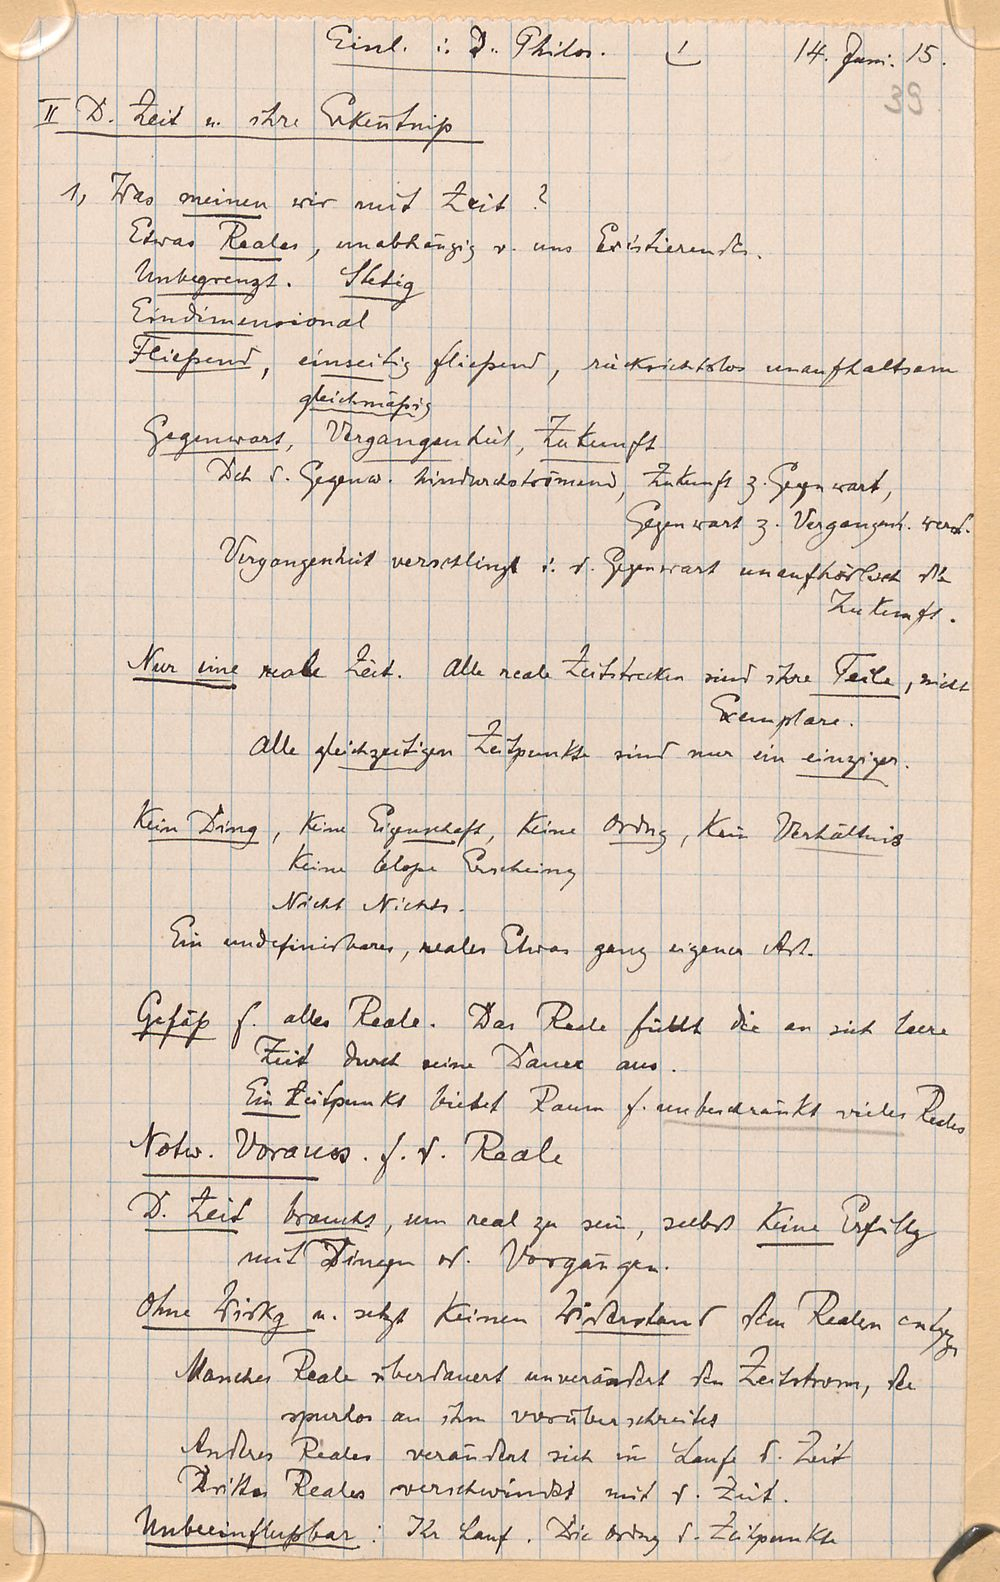 Einl. i. D. Philos. 1 14. Juni. 15.
39
II D. Zeit u. ihre Erkentniß
1, Was meinen wir mit Zeit ?
Etwas Reales, unabhängig v. uns Existierendes.
Unbegrenzt. Stetig
Eindimensional
Fließend, einseitig fließend, rücksichtslos unaufhaltsam
gleichmäßig
Gegenwart, Vergangenheit, Zukunft
Dch d. Gegenw. hindurchströmend, Zukunft z. Gegenwart,
Gegenwart z. Vergangenh. werd.
Vergangenheit verschlingt i. d. Gegenwart unaufhörlich die
Zukunft.
Nur eine reale Zeit. Alle reale Zeitstrecken sind ihre Teile, nicht
Exemplare.
Alle gleichzeitigen Zeitpunkte sind nur ein einziger.
Kein Ding, keine Eigenschaft, keine Ordng, kein Verhältnis
Keine bloße Erscheing
Nicht Nichts.
Ein undefinirbares, reales Etwas ganz eigener Art.
Gefäß f. alles Reale. Das Reale füllt die an sich leere
Zeit durch seine Dauer aus.
Ein Zeitpunkt bietet Raum f. unbeschränkt vieles Reales
Notw. Vorauss. f. d. Reale
D. Zeit braucht, um real zu sein, selbst keine Erfüllg
mit Dingen od. Vorgängen.
Ohne Wirkg u. setzt keinen Widerstand dem Realen entgeg
Manches Reale überdauert unverändert den Zeitstrom, der
spurlos an ihm vorüberschreitet
Anderes Reales verändert sich im Laufe d. Zeit
Drittes Reales verschwindet mit d. Zeit.
Unbeeinflußbar : Ihr Lauf. Die Ordng d. Zeitpunkte